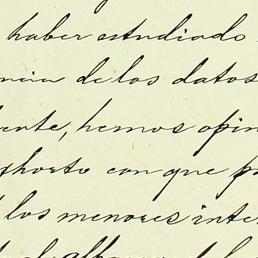 haber estudiado
ncia de los datos
ente, hemos opin
xhorto con que p
los menores inte